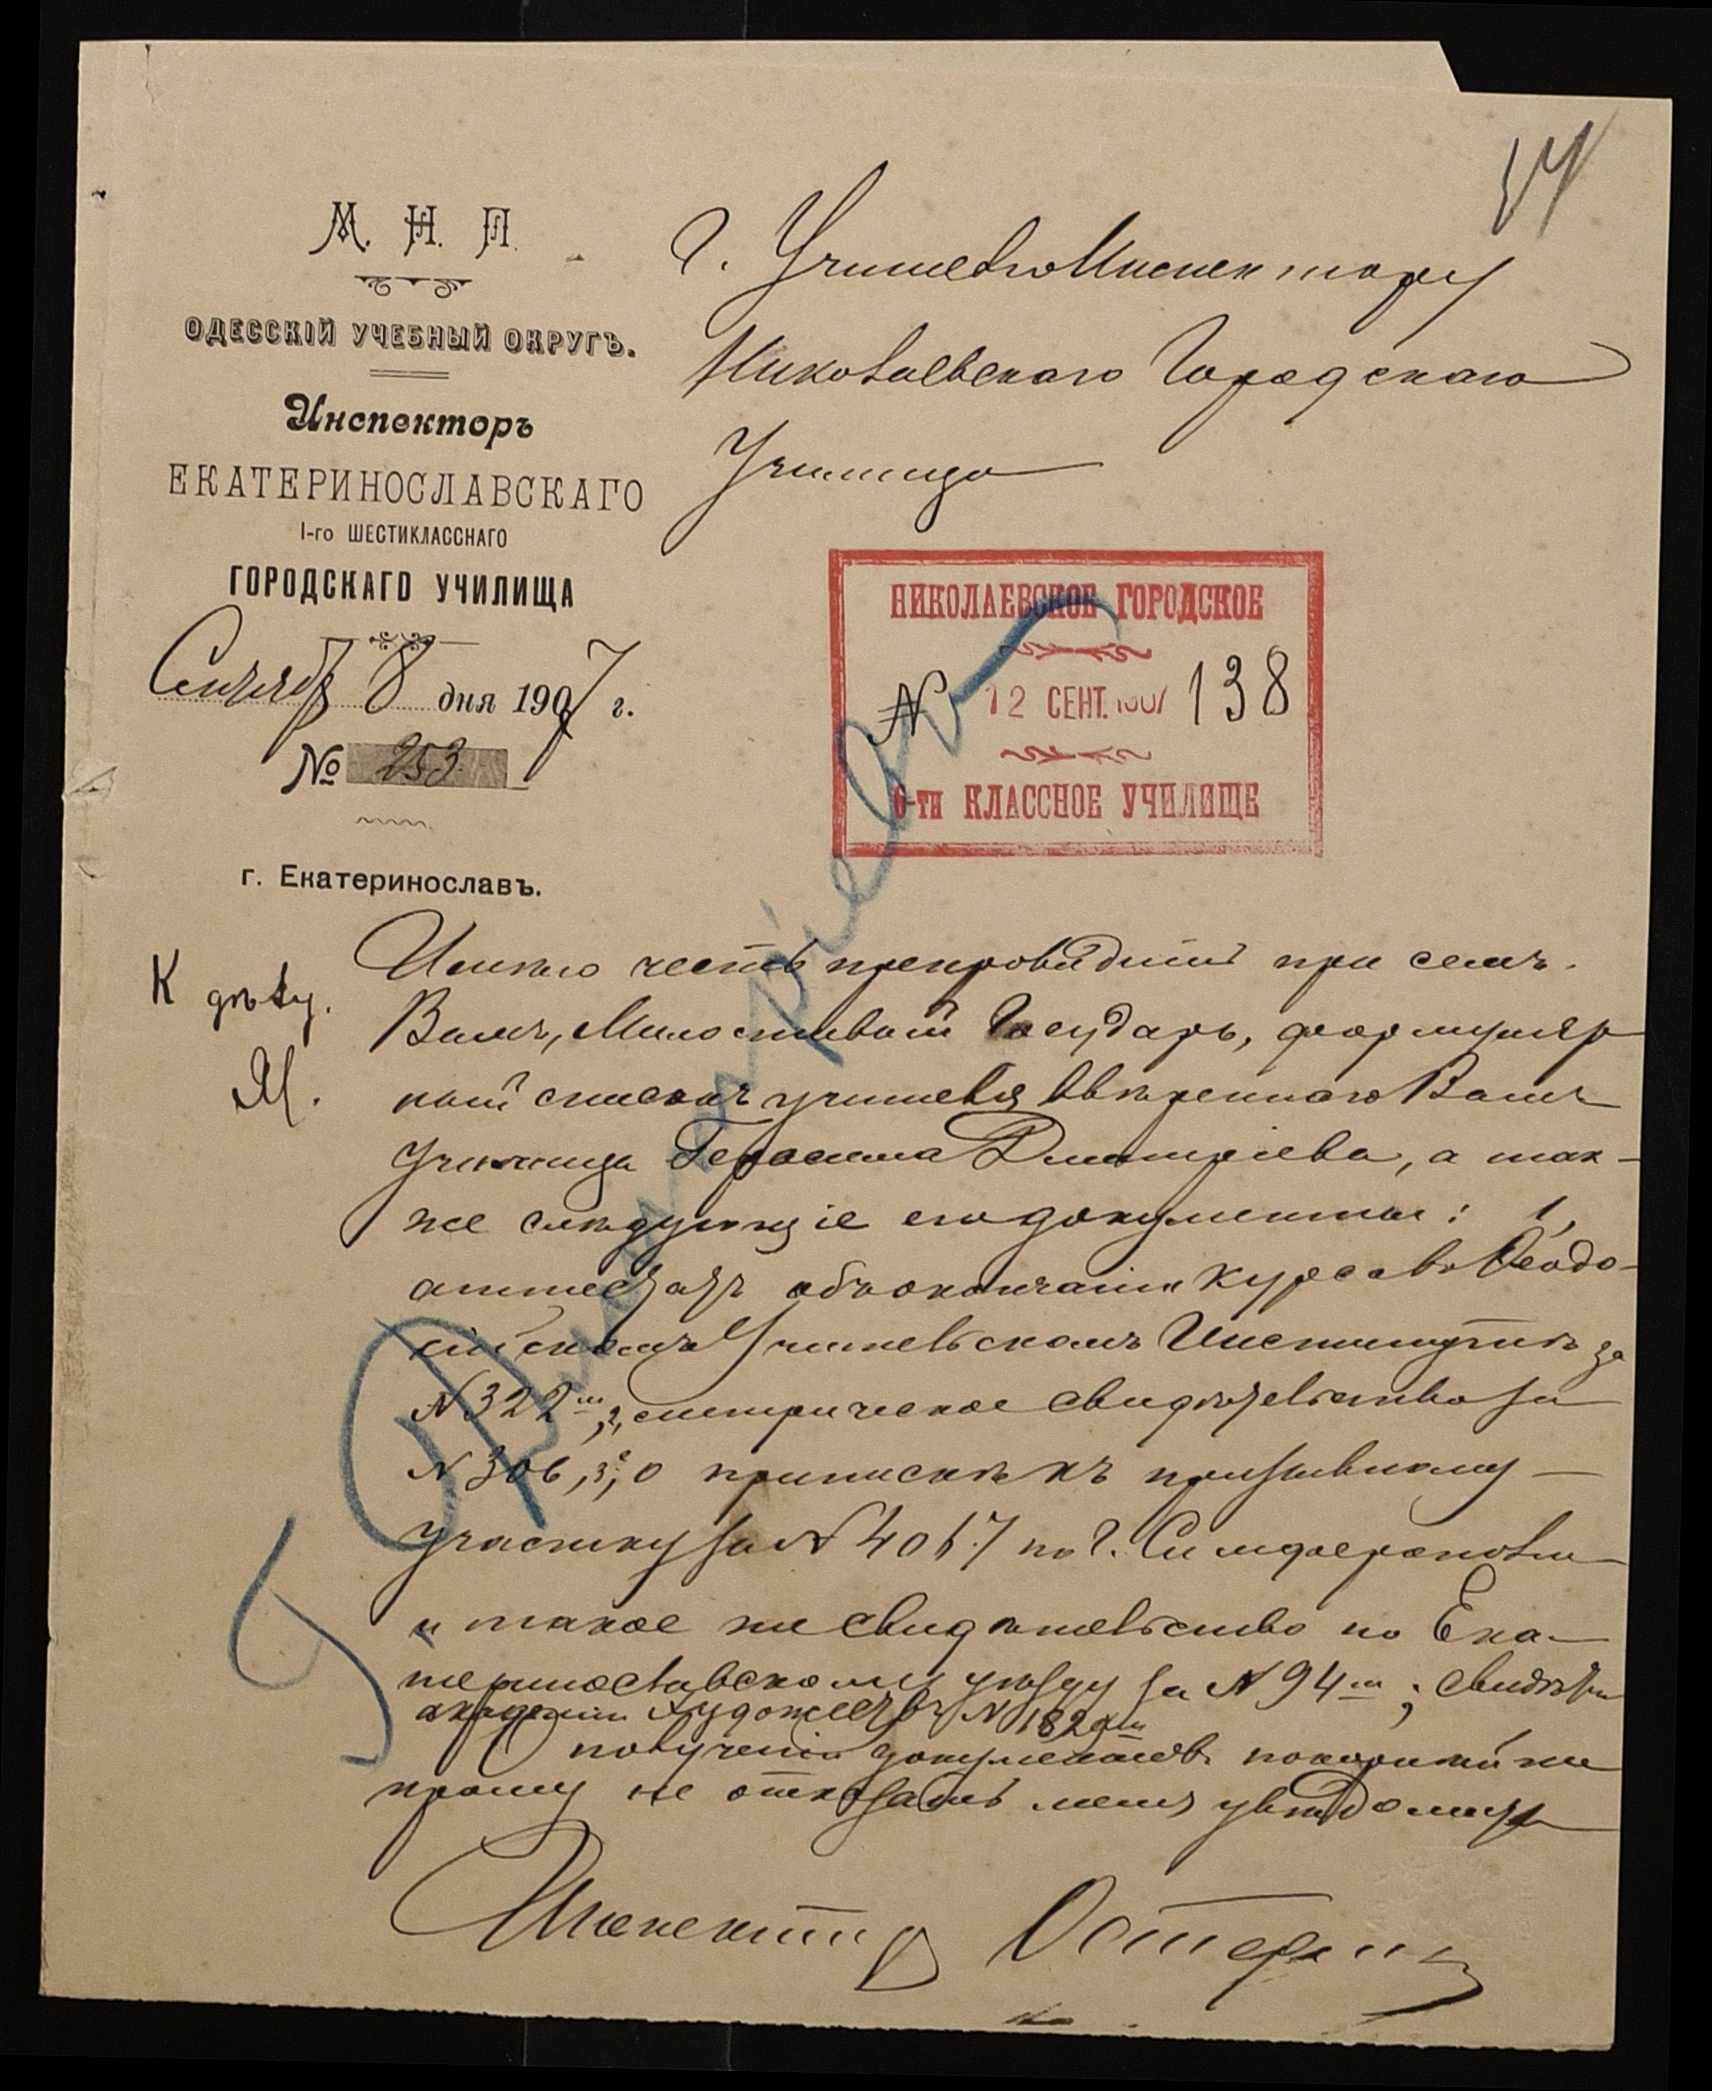 М. Н. П.
ОДЕССКІЙ УЧЕБНЫЙ ОКРУГЪ.
Инспекторъ
ЕКАТЕРИНОСЛАВСКАГО
I-го ШЕСТИКЛАССНАГО
ГОРОДСКАГО УЧИЛИЩА
8 дня 1907 г.
№ 253
г. Екатеринославъ.
Г. Учителю Инспектору
Николаевскаго Городскаго
Училища
НИКОЛАЕВСКОЕ ГОРОДСКОЕ
N 12 СЕНТ. 1907 138
6-ти КЛАССНОЕ УЧИЛИЩЕ
К дѣлу.
Имѣю честь препроводить при семъ
Вамъ, Милостивый Государь, формуляр
ный списокъ учителя ввѣреннаго Вамъ
училища Герасима Дмитріева, а так-
же слѣдующіе его документы: 1,
аттестатъ объ окончаніи курса въ Ѳеодо-
сійскомъ Учительскомъ Институтѣ за
N 322, 2, метрическое свидѣтельство за
N 306, 3, о припискѣ къ призывному
участку за N 4067 по г. Симферополю
и такое же свидѣтельство по Ека-
теринославскому уѣзду за N 94; свидѣт
академіи художествъ N 1829
полученіи документовъ покорнѣйше
прошу не отказать меня увѣдомить
Инспекторъ